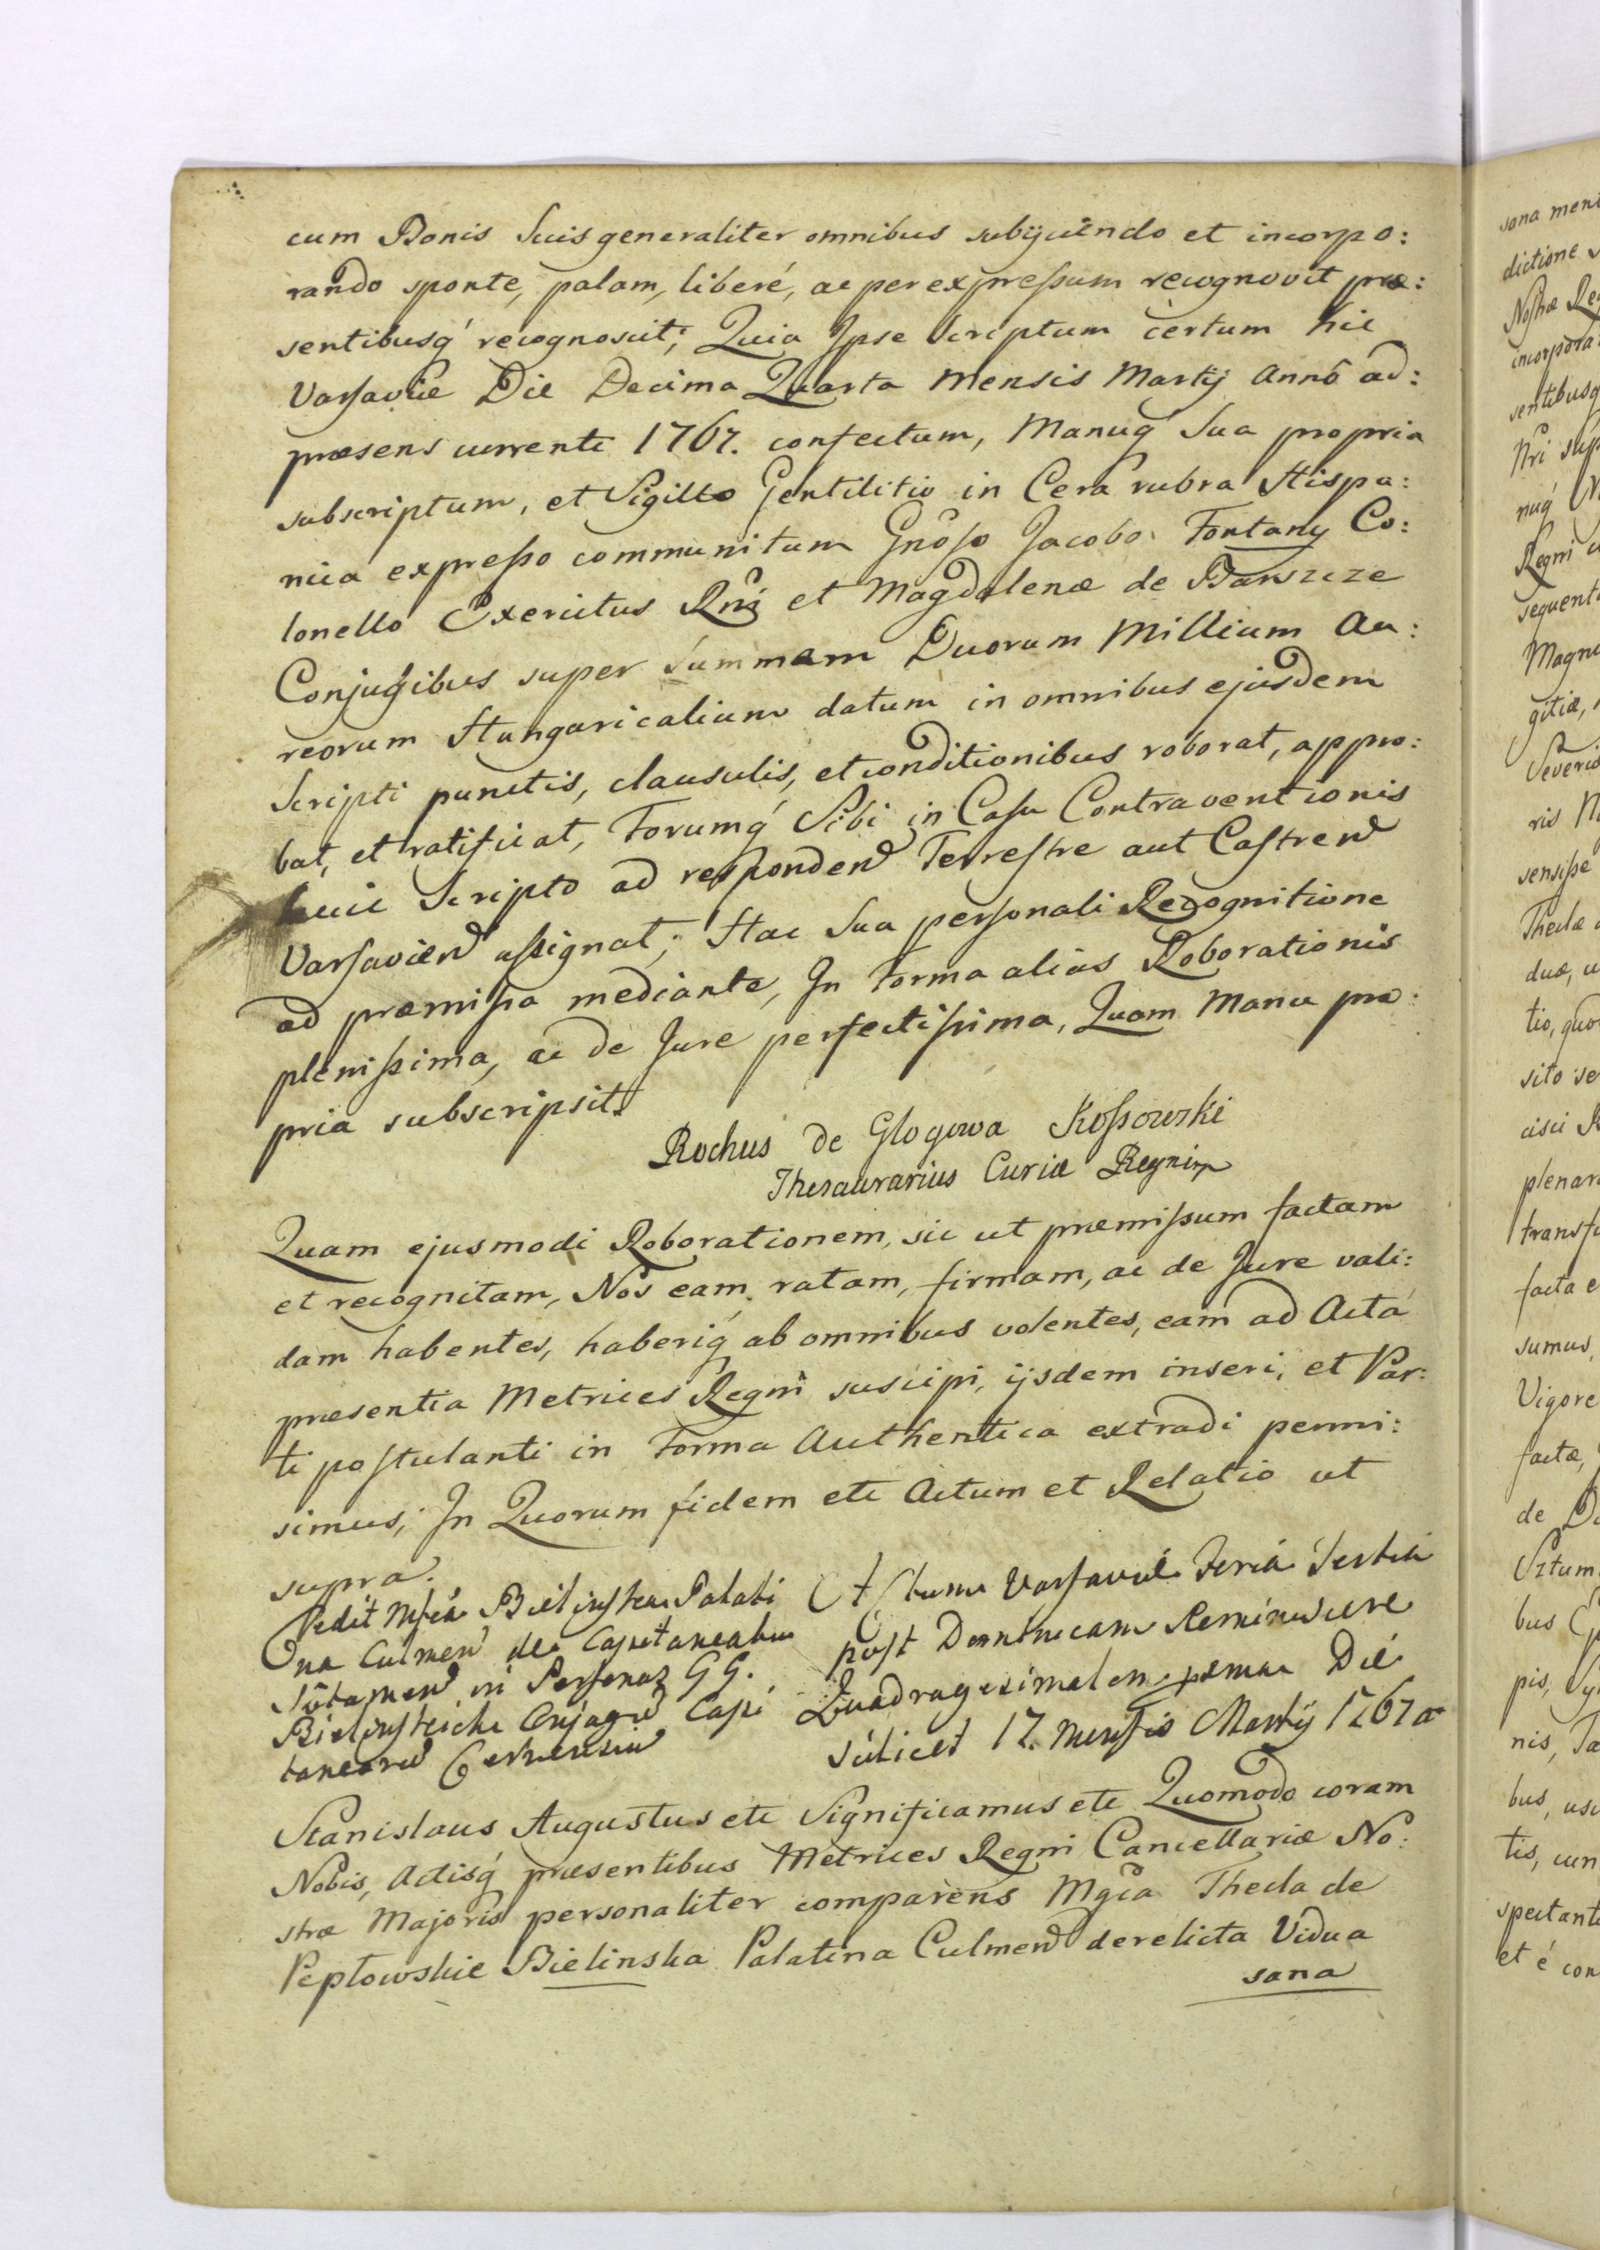 cum Bonis Suis generaliter omnibus subijciendo et incorpo:
rando sponte, palam, liberé, ac per expreſsum recognovit præ:
sentibusq́ recognoscit; Quia Ipse Scriptum certum hic
Varsaviæ Die Decima Quarta Mensis Martij Annô ad:
præsens currente 1767. confectum, Manuq́ Sua propria
subscriptum, et Sigillo Gentilitio in Cera rubra Hispa:
nica expreſso communitum Gnôso Jacobo Fontany Co:
lonello Exercitus Rñi et Magdalenæ de Barszcze
Conjugibus super Summam Duorum Millium Au:
reorum Hungaricalium datum in omnibus ejusdem
Scripti punctis, clausulis, et conditionibus roborat, appro:
bat, et ratificat, Forumq́ Sibi in Casu Contraventionis
huic Scripto ad responden̄ Terrestre aut Castren̄
Varsavien̄ aſsignat; Hac Sua personali Recognitione
ad præmiſsa mediante, In Forma alias Roborationis
pleniſsima, ac de Jure perfectiſsima, Quam Manu pro:
pria subscripsit.
Rochus de Glogowa Koſsowski
Thesaurarius Curiæ Regni
Quam ejusmodi Roborationem, sic ut præmiſsum factam
et recognitam, Nos eam ratam, firmam, ac de Jure vali:
dam habentes, haberiq́ ab omnibus volentes, eam ad Acta
præsentia Metrices Regni suscipi, ijsdem inseri, et Par:
ti postulanti in Forma Authentica extradi permi:
simus; In Quorum fidem etc Actum et Relatio ut
supra.
Cedit Mfca Bielinska Palati
na Culmen̄ de Capitaneatu
in Personas GG.
Bielinskich Conjugū Capi
taneorū
Actum Varsaviæ Feria Tertia
post Dominicam Reminiscere
Quadragesimalem proxima Die
scilicet 17. Mensis Martij 1767 a
Stanislaus Augustus etc Significamus etc Quomodo coram
Nobis, Actisq́ præsentibus Metrices Regni Cancellariæ No:
stræ Majoris personaliter comparens Mgca Thecla de
Pepłowskie Bielinska Palatina Culmen̄ derelicta Vidua
sana
sona ment
dictione
Nostræ Reg
incorpora
sentibusq
Nri sup
nuq́
Regni
sequent
Magn
gitiæ,
Severi
ris
sensiſse
Theclæ
duæ, u
tio, quo
sito se
cisci
plenar
transf
facta e
sumus,
Vigore
factæ,
de
Sztum
bus
pis,
nis,
bus, usu
tis, cun
spectant
et é con